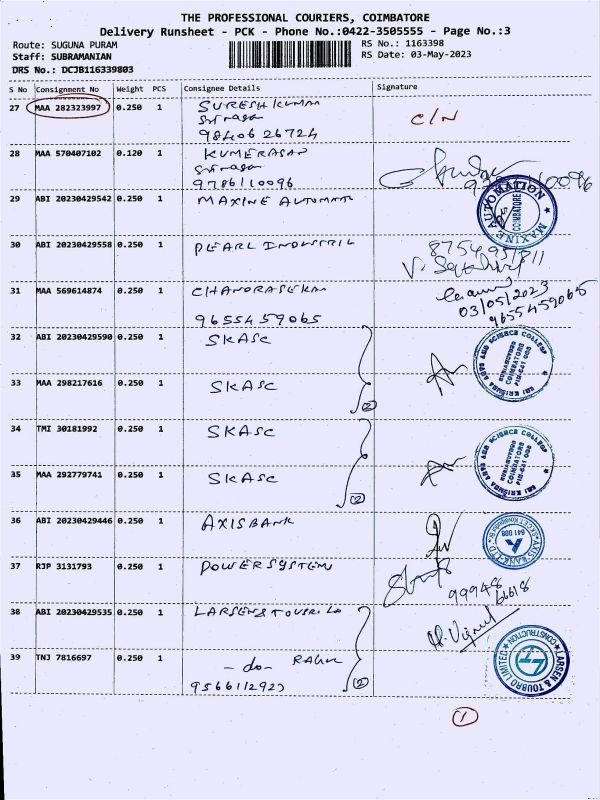 THE PROFESSIONAL COURIERS, COIMBATORE
Delivery Runsheet - PCK - Phone No.:0422-3505555 - Page No.:3
Route: SUGUNA PURAM RS No.: 1163398
Staff: SUBRAMANIAN RS Date: 03-May-2023
DRS No.: DCJB116339803
S No Consignment No Weight PCS Consignee Details Signature
27 MAA 282323997 0.250 1 SURESH KUMAR
C/N
98406 26724
28 MAA 570407102 0.120 1 KUMERASAN
9786110096
29 ABI 20230429542 0.250 1 MAXINE AUTOMAT
MAXINE AUTOMATION
COIMBATORE
30 ABI 20230429558 0.250 1 PEARL INDUSTRIL
31 MAA 569614874 0.250 1 CHANDRASEKAR
03/05/2023
9655459065 9655459065
32 ABI 20230429590 0.250 1 SKASC
33 MAA 298217616 0.250 1 SKASC
2
SRI KRISHNA ARTS AND SCIENCE COLLEGE
COIMBATORE
34 TMI 30181992 0.250 1 SKASC
35 MAA 292779741 0.250 1 SKASC
2
SRI KRISHNA ARTS AND SCIENCE COLLEGE
COIMBATORE
36 ABI 20230429446 0.250 1 AXIS BANK
AXIS BANK LTD
641 008
37 RJP 3131793 0.250 1 POWER SYSTEM
99948
66618
38 ABI 20230429535 0.250 1 LARSEN & TOUBRO LD
39 TNJ 7816697 0.250 1 - do -
9566112923
2
LARSEN & TOUBRO LIMITED
CONSTRUCTION
1